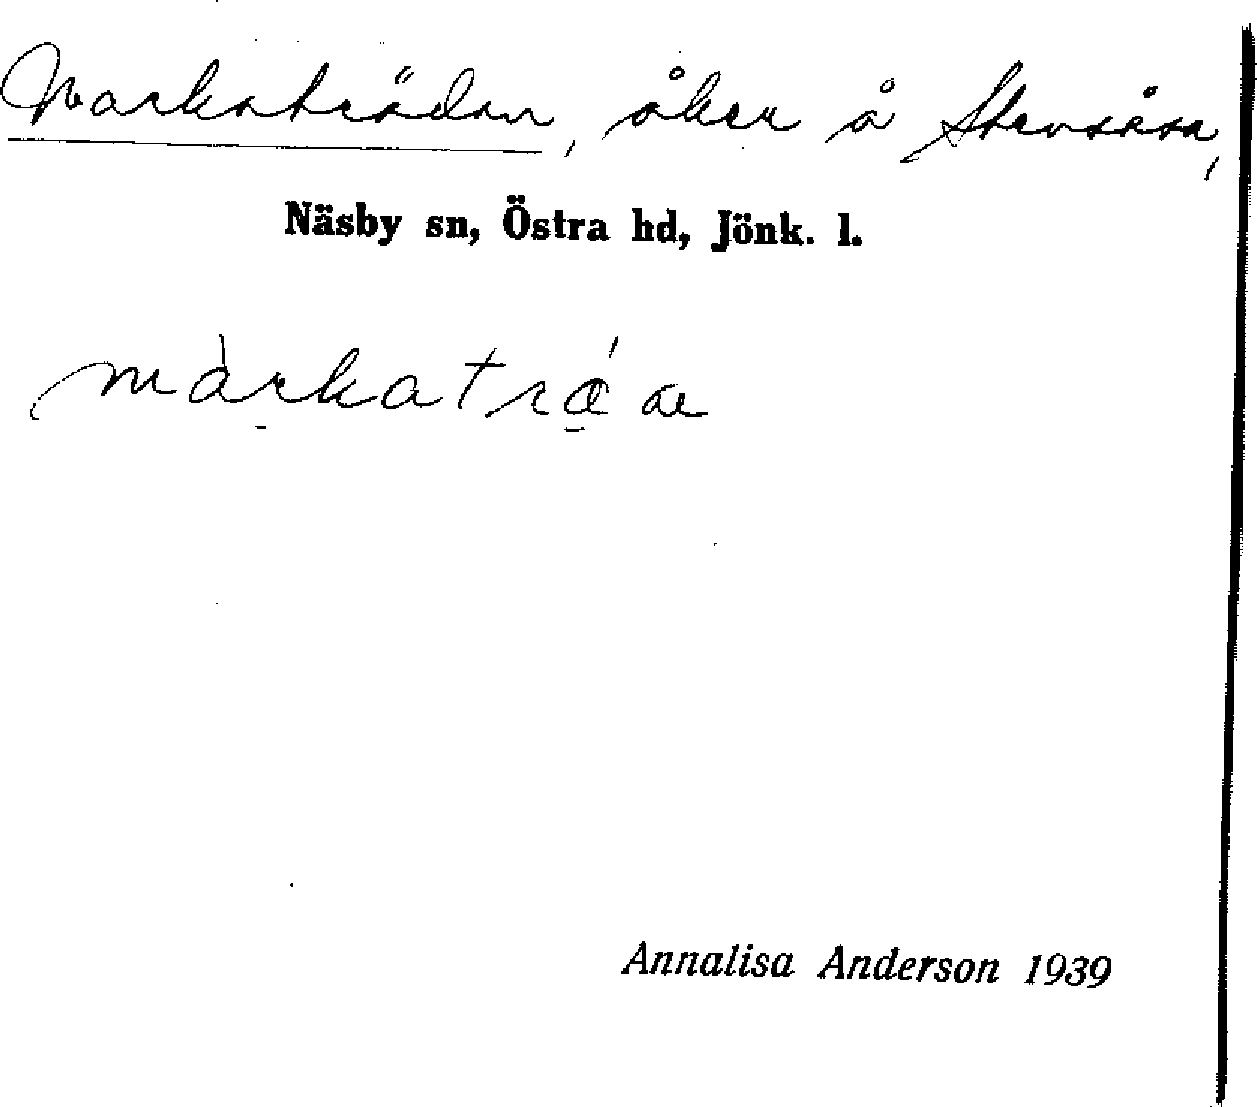 Markaträdan, åker å Stensåsa,
Näsby sn, Östra hd, Jönk. l.
màrkatrǽ æ
Annalisa Anderson 1939